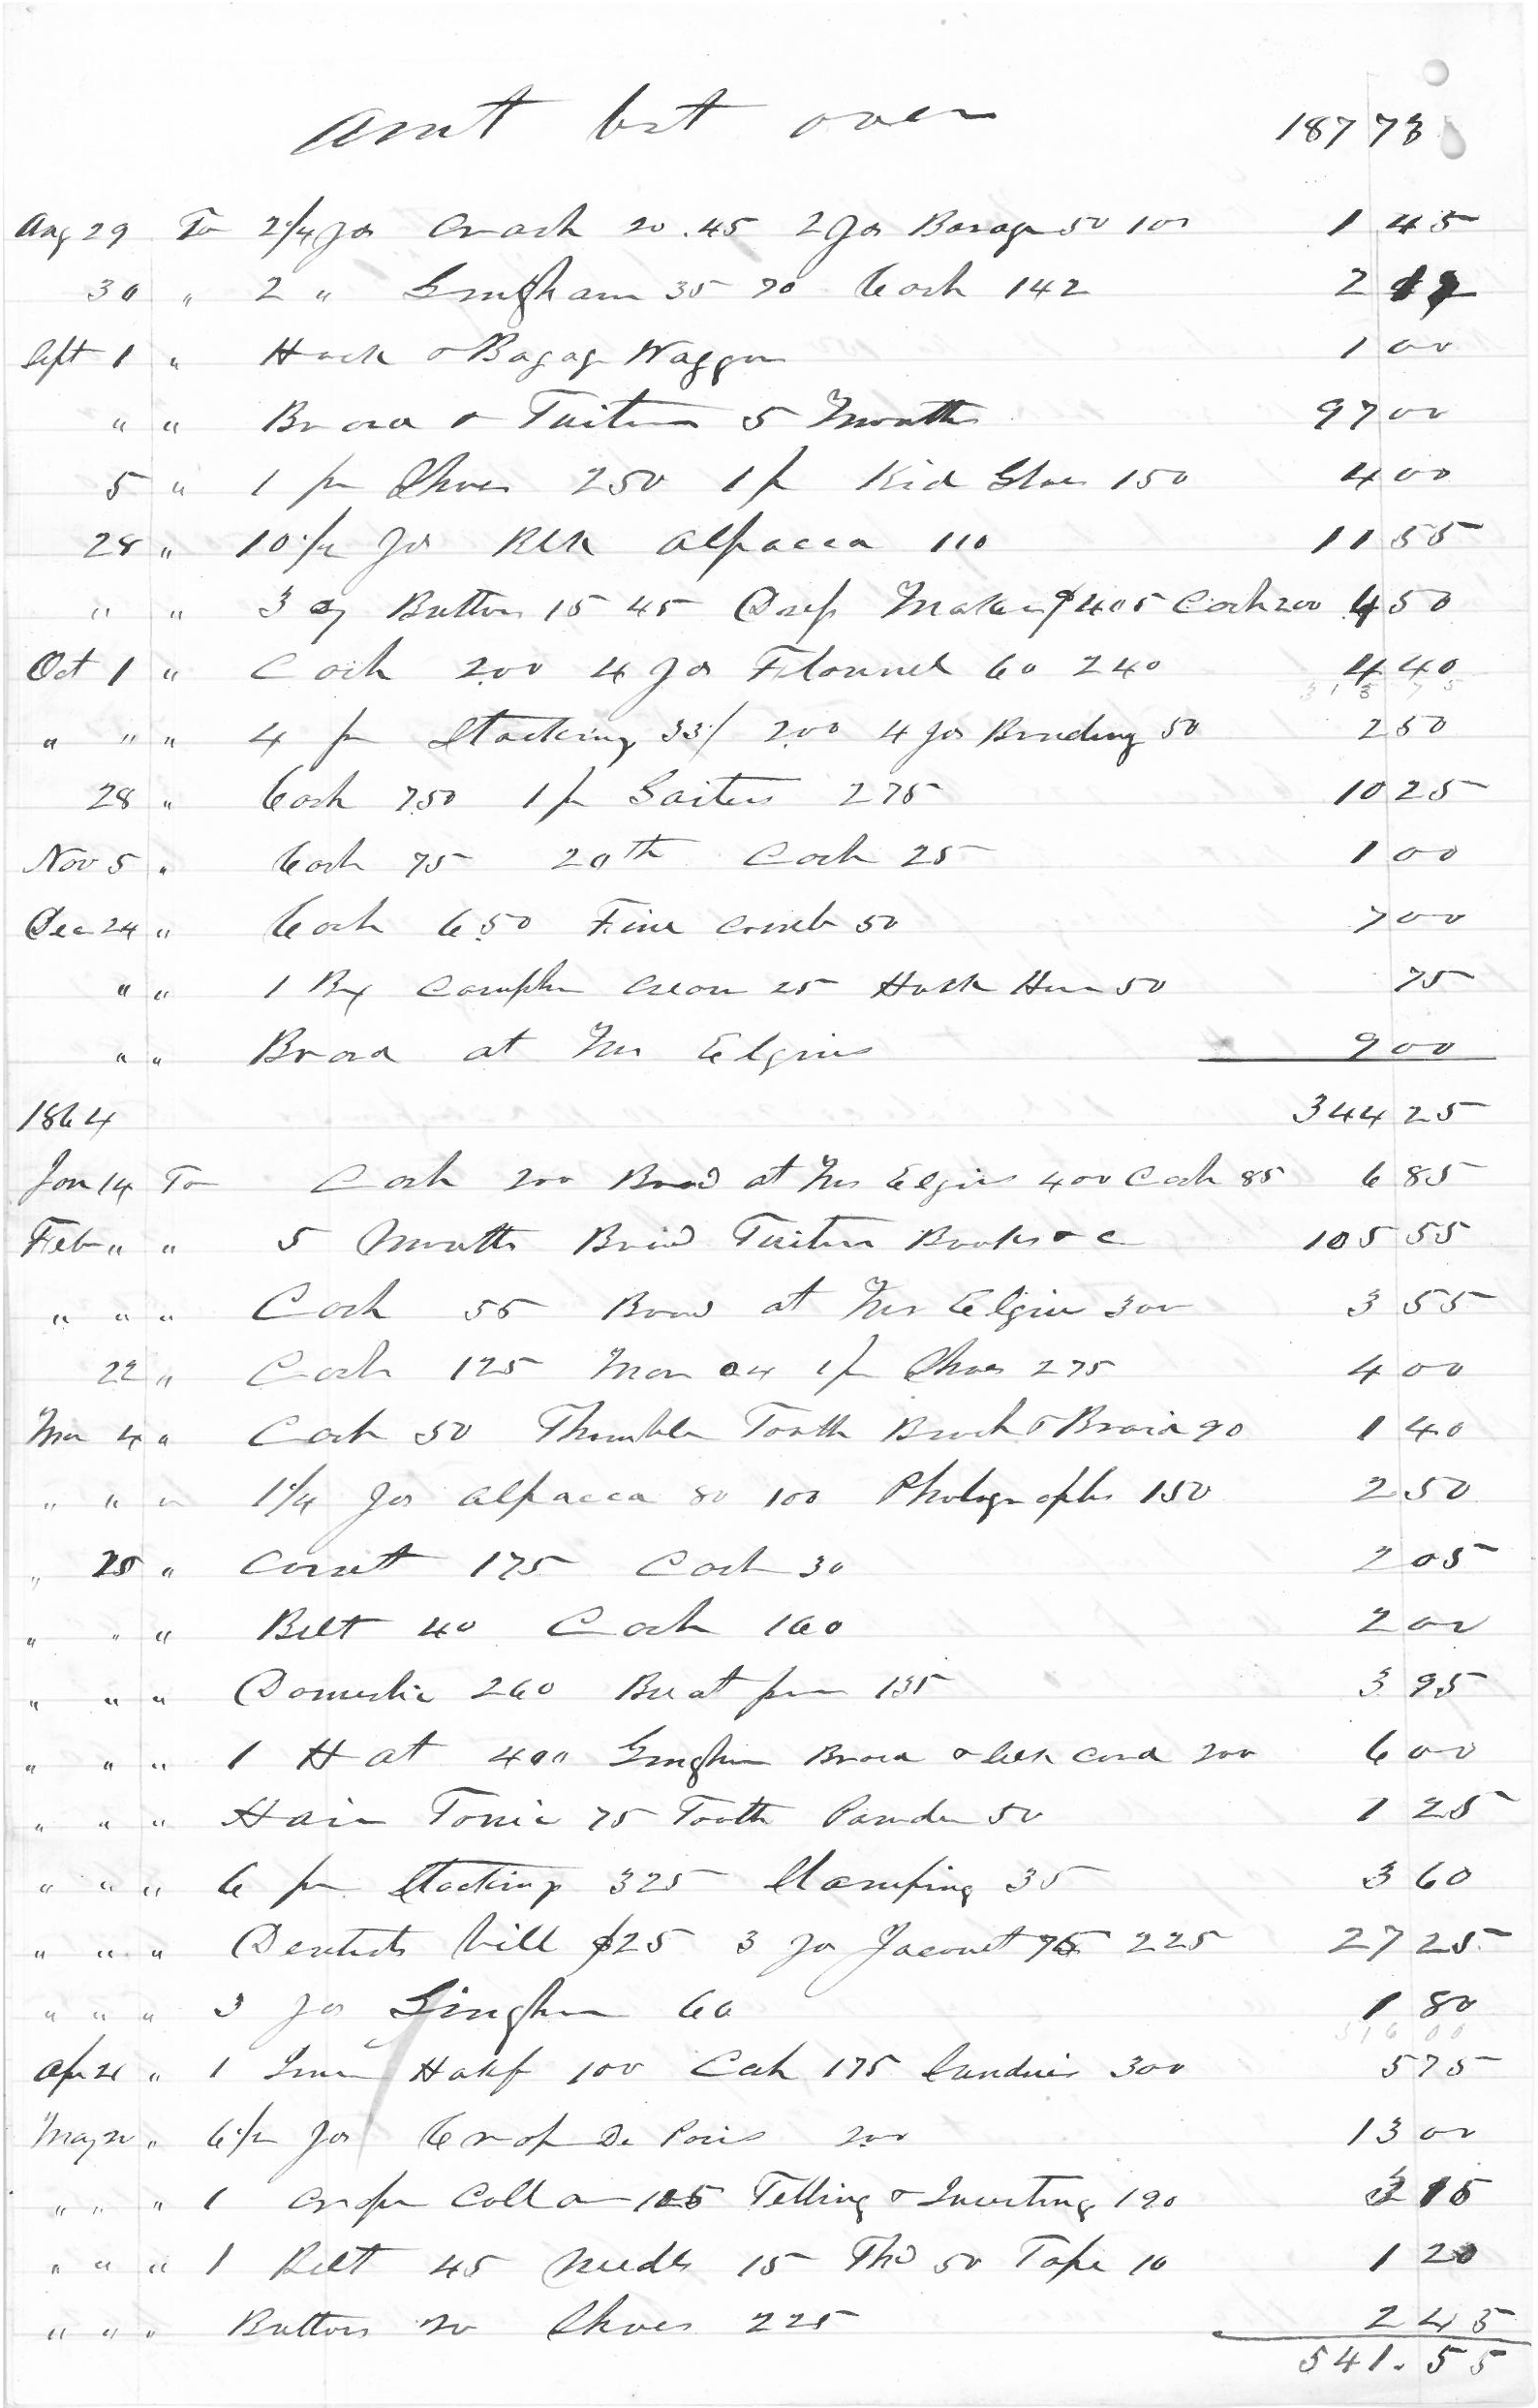 Amt bt over 187 73
Aug 29 To 2 1/4 yds Crash 20 .45 2 yds Barage 50 100 1 45
30 " 2 " Gingham 35 70 Cash 142 2 12
Sept 1 " Hack & Bagag Waggon 1 00
" " Board & Tuition 5 Months 97 00
5 " 1 pr Shoes 250 1 pr Kid Gloves 150 4 00
28 " 10 1/2 yds Blk Alpacca 110 11 55
" " 3 dz Buttons 15 45 Dress Making $405 Cash 200 4 50
Oct 1 " Cash 2.00 4 yds Flannel 60 240 4 40
" " " 4 pr Stockings 33/ 2.00 4 yds Binding 50 2 50
28 " Cash 7.50 1 pr Gaiters 275 10 25
Nov 5 " Cash 75 20th Cash 25 1 00
Dec 24 " Cash 6.50 Fine Comb 50 7 00
" " 1 Bx Camphor Cream 25 Hack Hire 50 75
" " Board at Mrs Elgins 9 00
1864 344 25
Jan 14 To Cash 200 Board at Mrs Elgins 400 Cash 85 6 85
Feb " " 5 Months Board Tuition Books & c 105 55
" " " Cash 55 Board at Mrs Elgins 300 3 55
22 " Cash 125 Mar 4 1 pr Shoes 275 4 00
Mar 4 " Cash 50 Thimble Tooth Brush & Braid 90 1 40
" " " 1 1/4 yds Alpacca 80 100 Photographs 150 2 50
" 25 " Corset 175 Cash 30 2 05
" " " Belt 40 Cash 160 2 00
" " " Domestic 260 Breast pin 135 3 95
" " " 1 Hat 400 Gingham Braid & Silk Cord 200 6 00
" " " Hair Tonic 75 Tooth Powder 50 1 25
" " " 6 pr Stockings 325 Stamping 35 3 60
" " " Dentists bill $25 3 yds Jaconet 75 225 27 25
" " " 3 yds Gingham 60 1 80
Apr 21 " 1 Linen Hdkf 100 Cash 175 Sundries 300 5 75
May 20 " 6 1/2 yds Crape De Paris 200 13 00
" " " 1 Crape Collar 125 Telling & Inserting 190 3 15
" " " 1 Belt 45 Needles 15 Thd 50 Tape 10 1 20
" " " Buttons 20 Shoes 225 2 45
541.55